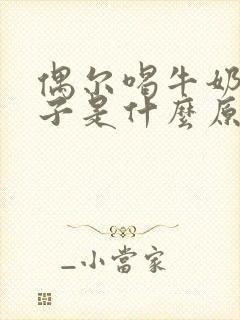 偶尔喝牛奶
子是什麼原
_小當家